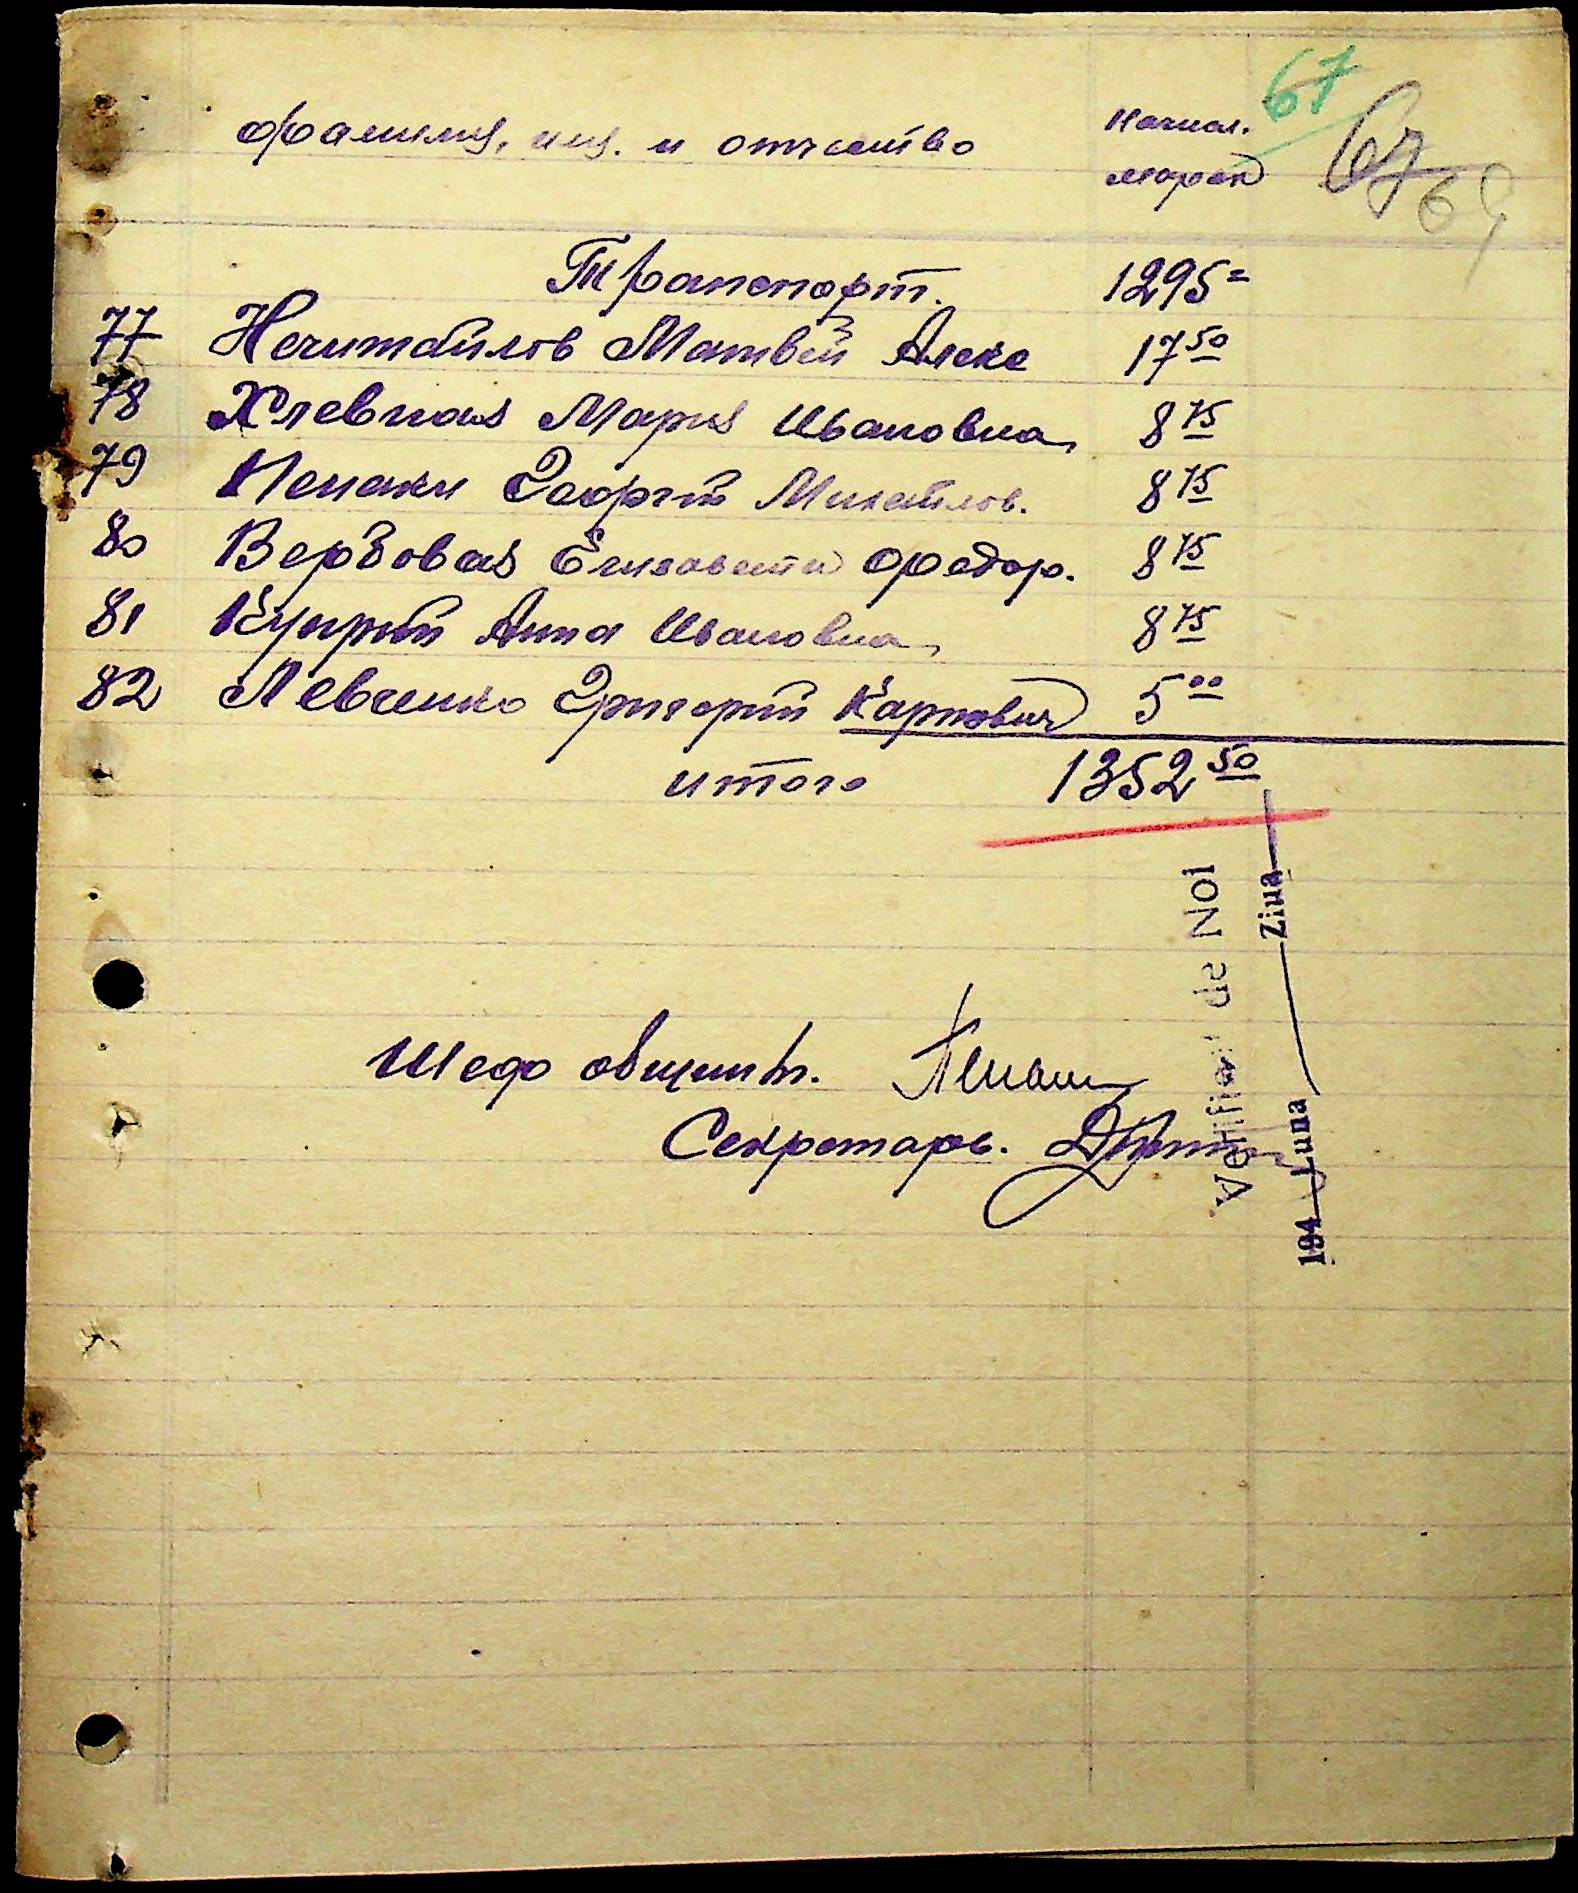 67
67
69
фамилия, имя. и отчество Начисл. марок
Транспорт. 1295=
77 Нечитайлов Матвей Алекс 17 50
78 Хлевная Мария Ивановна 8 75
79 Георгий Михайлов. 8 75
80 Вербовая Елизавета Федор. 8 75
81 Куцрий Анна Ивановна 8 75
82 Левченко Григорий Карпович 5 00
итого 1352 50
Шеф общин.
Секретарь.
Verificat de Noi
194 Luna Ziua